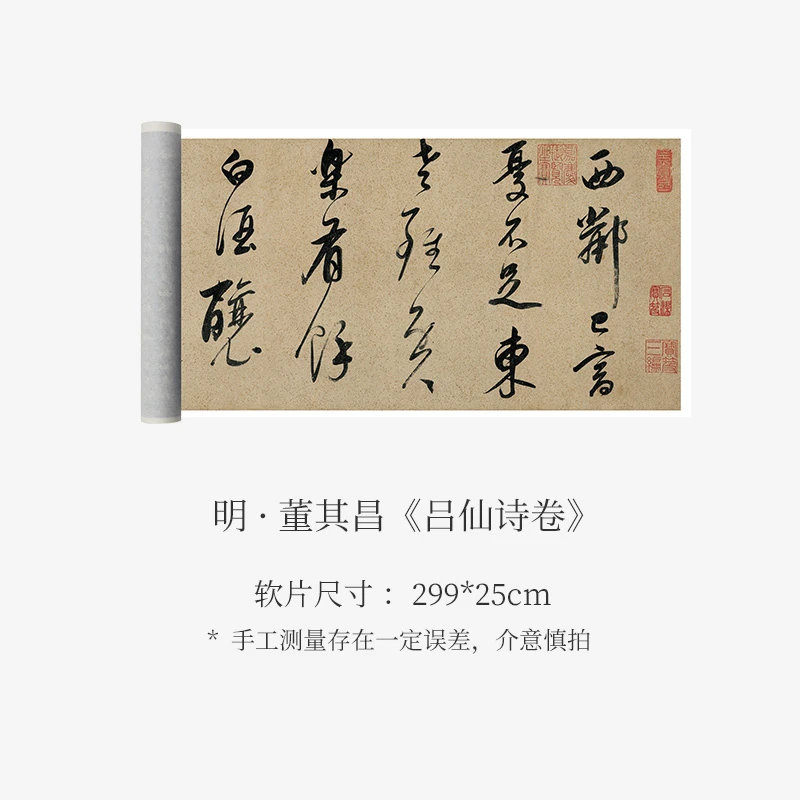 西鄰已富
憂不足東
老雖貧
樂有餘
白酒釀
明·董其昌《吕仙诗卷》
软片尺寸：299*25cm
* 手工测量存在一定误差，介意慎拍